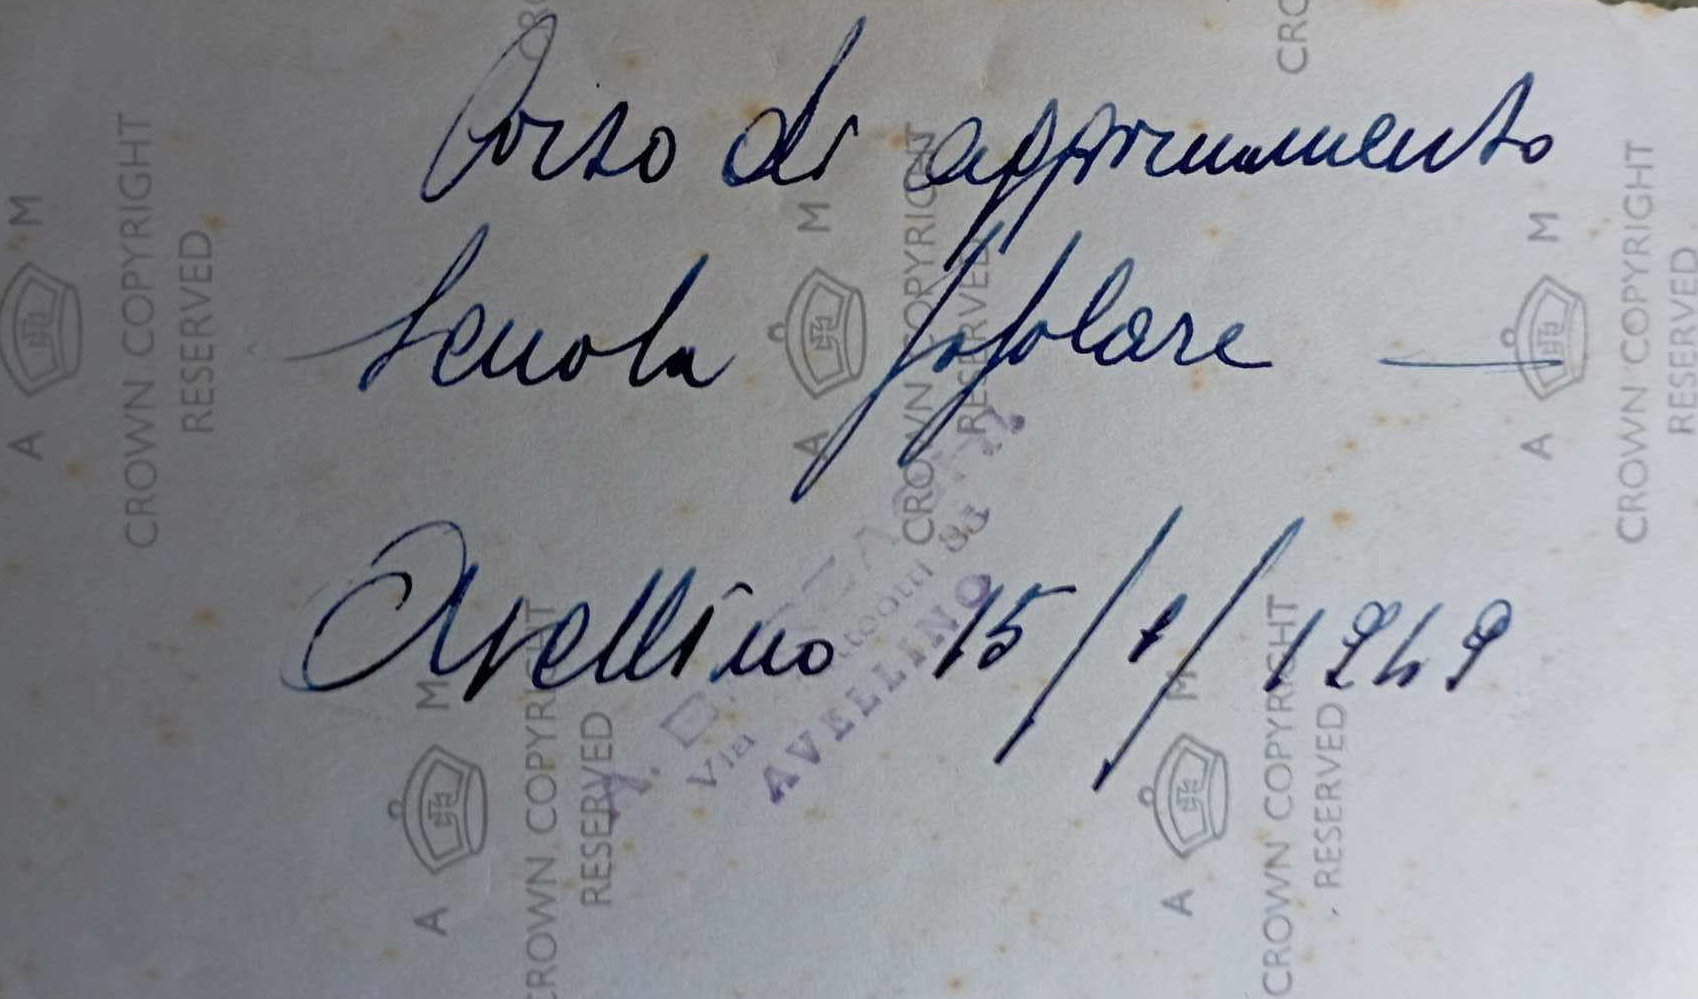 Corso di aggiornamento
Scuola Popolare —
Avellino 15/1/1949
AVELLINO
Via
A M
CROWN COPYRIGHT
RESERVED
A M
CROWN COPYRIGHT
RESERVED
A M
CROWN COPYRIGHT
RESERVED
A M
CROWN COPYRIGHT
RESERVED
A M
CROWN COPYRIGHT
RESERVED